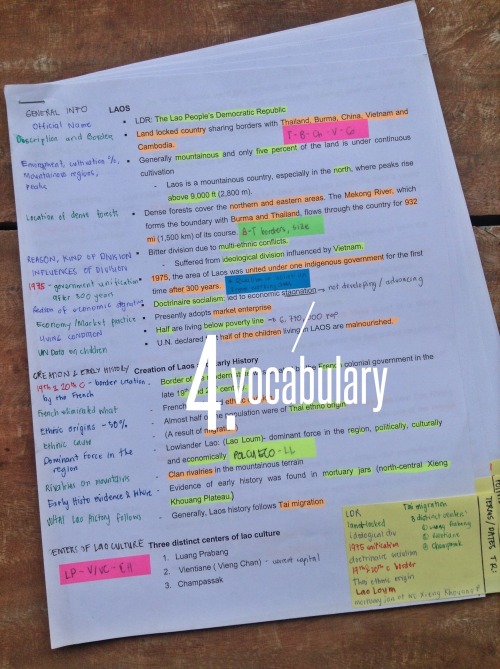 GENERAL INFO
Official Name
Description and Borders
Location of dense forests
REASON, KIND OF DIVISION
INFLUENCES OF DIVISION
1975 - government unification
after 300 years
Economy/Market practice
LIVING CONDITION
UN Data on children
CREATION & EARLY HISTORY
19th & 20th C - border creation
by the French
French eliminated what
Ethnic origins - 50%
ethnic cause
Dominant force in the
region
Rivalries on mountains
Early Histo evidence & where
What Lao History follows
CENTERS OF LAO CULTURE
LP - V/VC - CH
LAOS
• LDR: The Lao People's Democratic Republic
• Land locked country sharing borders with Thailand, Burma, China, Vietnam and
Cambodia.
T - B - Ch - V - Ca
• Generally mountainous and only five percent of the land is under continuous
cultivation
- Laos is a mountainous country, especially in the north, where peaks rise
above 9,000 ft (2,800 m).
• Dense forests cover the northern and eastern areas. The Mekong River, which
forms the boundary with Burma and Thailand, flows through the country for 932
mi (1,500 km) of its course.
B-T borders, size
• Bitter division due to multi-ethnic conflicts.
- Suffered from ideological division influenced by Vietnam.
• 1975, the area of Laos was united under one indigenous government for the first
time after 300 years.
• Doctrinaire socialism: led to economic stagnation
→ not developing / advancing
• Presently adopts market enterprise
• Half are living below poverty line
• U.N. declared half of the children living in LAOS are malnourished.
Creation of Laos Early History
- Border of the French colonial government in the
late 19th and 20th
- French
- Almost half of population were of Thai ethno origin
(A result of migration
- Lowlander Lao: (Lao Loum)- dominant force in the region, politically, culturally
and economically
POLCULECO - LL
- Clan rivalries in the mountainous terrain
- Evidence of early history was found in mortuary jars (north-central Xieng
Khouang Plateau.)
- Generally, Laos history follows Tai migration
Three distinct centers of lao culture
1. Luang Prabang
2. Vientiane ( Vieng Chan) - current capital
3. Champassak
4. vocabulary
LDR
land-locked
ideological div
1975 unification
doctrinaire socialism
19th & 20th c border
Thai ethnic origin
Lao Loum
Tai migration
3 distinct centers:
① Luang Prabang
② Vientiane
③ Champassak
TERMS/DATES